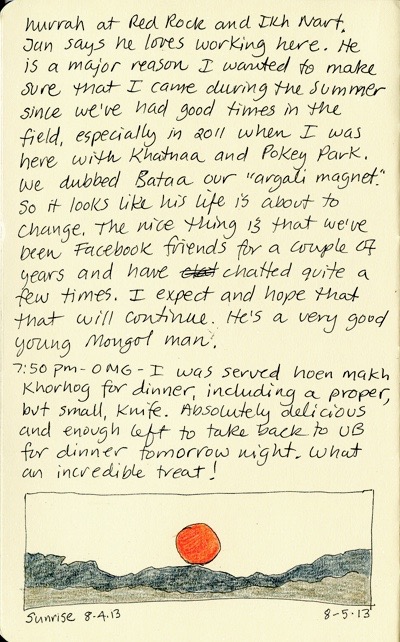 hurrah at Red Rock and Ikh Nart.
Jan says he loves working here. He
is a major reason I wanted to make
sure that I came during the summer
since we've had good times in the
field, especially in 2011 when I was
here with Khatnaa and Pokey Park.
We dubbed Bataa our "argali magnet."
So it looks like his life is about to
change. The nice thing is that we've
been Facebook friends for a couple of
years and have chatted quite a
few times. I expect and hope that
that will continue. He's a very good
young Mongol man.
7:50 pm - OMG - I was served hoen makh
Khorhog for dinner, including a proper,
but small, knife. Absolutely delicious
and enough left to take back to UB
for dinner tomorrow night. What
an incredible treat!
Sunrise 8-4-13
8-5-13